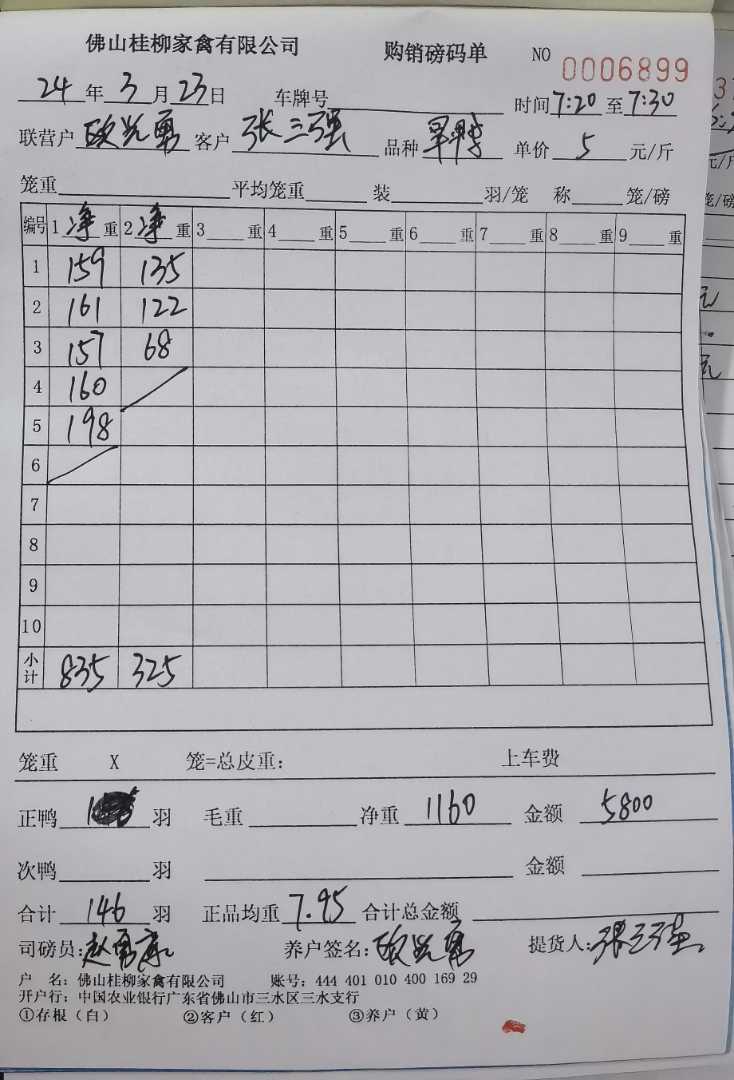 佛山桂柳家禽有限公司 购销磅码单 NO 0006899
24年3月23日 车牌号 时间7:20至7:30
联营户 欧兆勇 客户 张三强 品种 旱鸭 单价 5 元/斤
笼重 平均笼重 装 羽/笼 称 笼/磅
编号 1 净重 2 净重 3 重 4 重 5 重 6 重 7 重 8 重 9 重
1 159 135
2 161 122
3 157 68
4 160
5 198
6
7
8
9
10
小计 835 325
笼重 X 笼=总皮重: 上车费
正鸭 羽 毛重 净重 1160 金额 5800
次鸭 羽 金额
合计 146 羽 正品均重 7.95 合计总金额
司磅员: 养户签名: 欧兆勇 提货人: 张三强
户 名: 佛山桂柳家禽有限公司 账号: 444 401 010 400 169 29
开户行: 中国农业银行广东省佛山市三水区三水支行
①存根(白) ②客户(红) ③养户(黄)